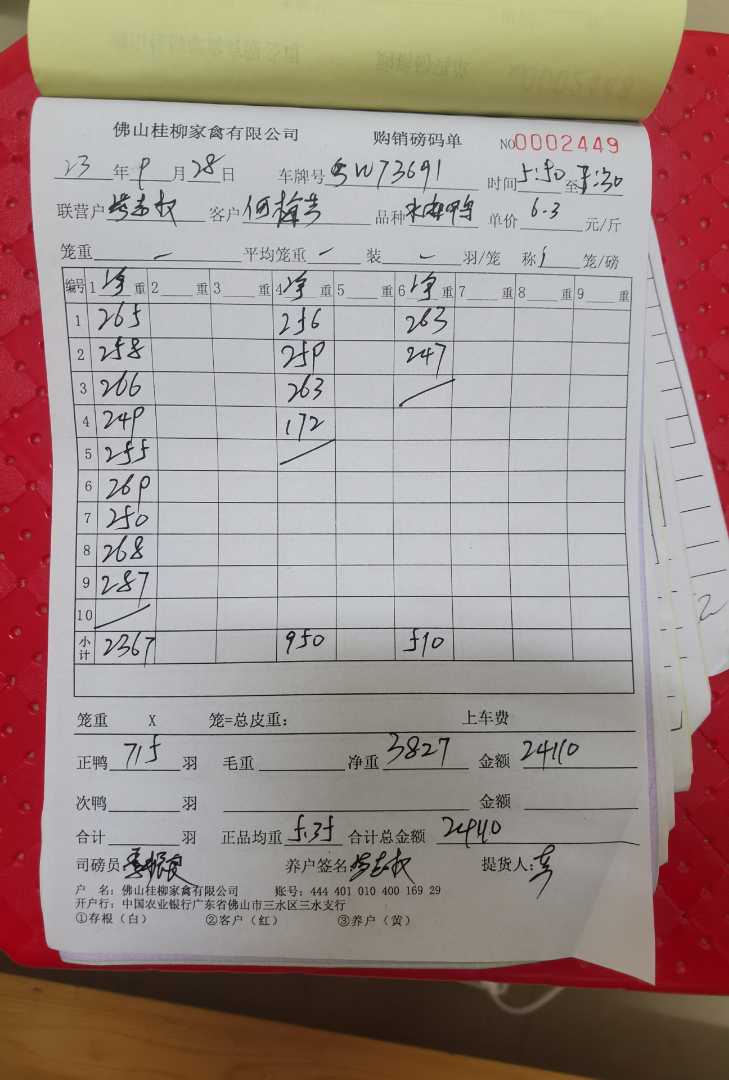 佛山桂柳家禽有限公司 购销磅码单 NO0002449
23 年 9 月 28 日 车牌号 粤W73691 时间 5:50 至 7:30
联营户 客户 何梅 品种 水鸭 单价 6.3 元/斤
笼重 — 平均笼重 — 装 — 羽/笼 称 1 笼/磅
编号 1 净 重 2 重 3 重 4 净 重 5 重 6 净 重 7 重 8 重 9 重
1 265 256 263
2 258 259 247
3 266 263
4 249 172
5 255
6 269
7 250
8 268
9 287
10
小计 2367 950 510
笼重 X 笼=总皮重: 上车费
正鸭 715 羽 毛重 净重 3827 金额 24110
次鸭 羽 金额
合计 羽 正品均重 5.35 合计总金额 24110
司磅员 养户签名 提货人:
户 名: 佛山桂柳家禽有限公司 账号: 444 401 010 400 169 29
开户行: 中国农业银行广东省佛山市三水区三水支行
①存根(白) ②客户(红) ③养户(黄)